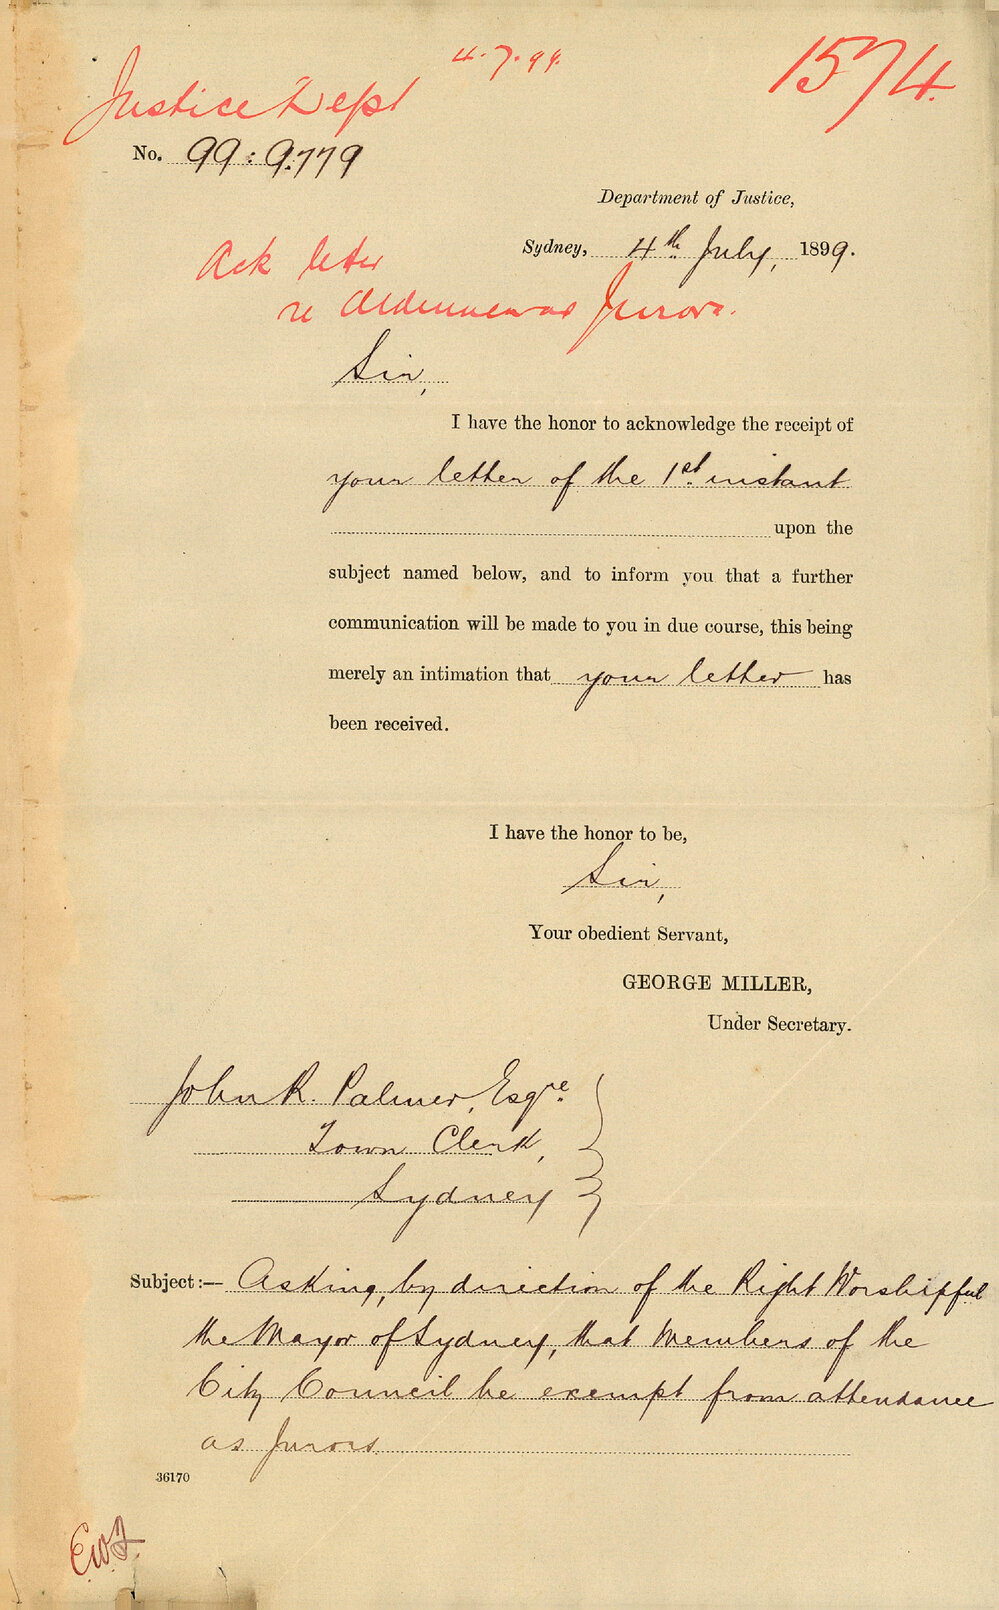 4.7.99.
1574.
Justice Dept
No. 99:9.779
Department of Justice,
Sydney, 4th July, 1899.
Ack letter
re Aldermen as Jurors.
Sir,
I have the honor to acknowledge the receipt of
your letter of the 1st. instant
upon the
subject named below, and to inform you that a further
communication will be made to you in due course, this being
merely an intimation that your letter has
been received.
I have the honor to be,
Sir,
Your obedient Servant,
GEORGE MILLER,
Under Secretary.
John R. Palmer, Esqre.
Town Clerk,
Sydney
Subject:— Asking, by direction of the Right Worshipful
the Mayor of Sydney, that Members of the
City Council be exempt from attendance
as Jurors
36170